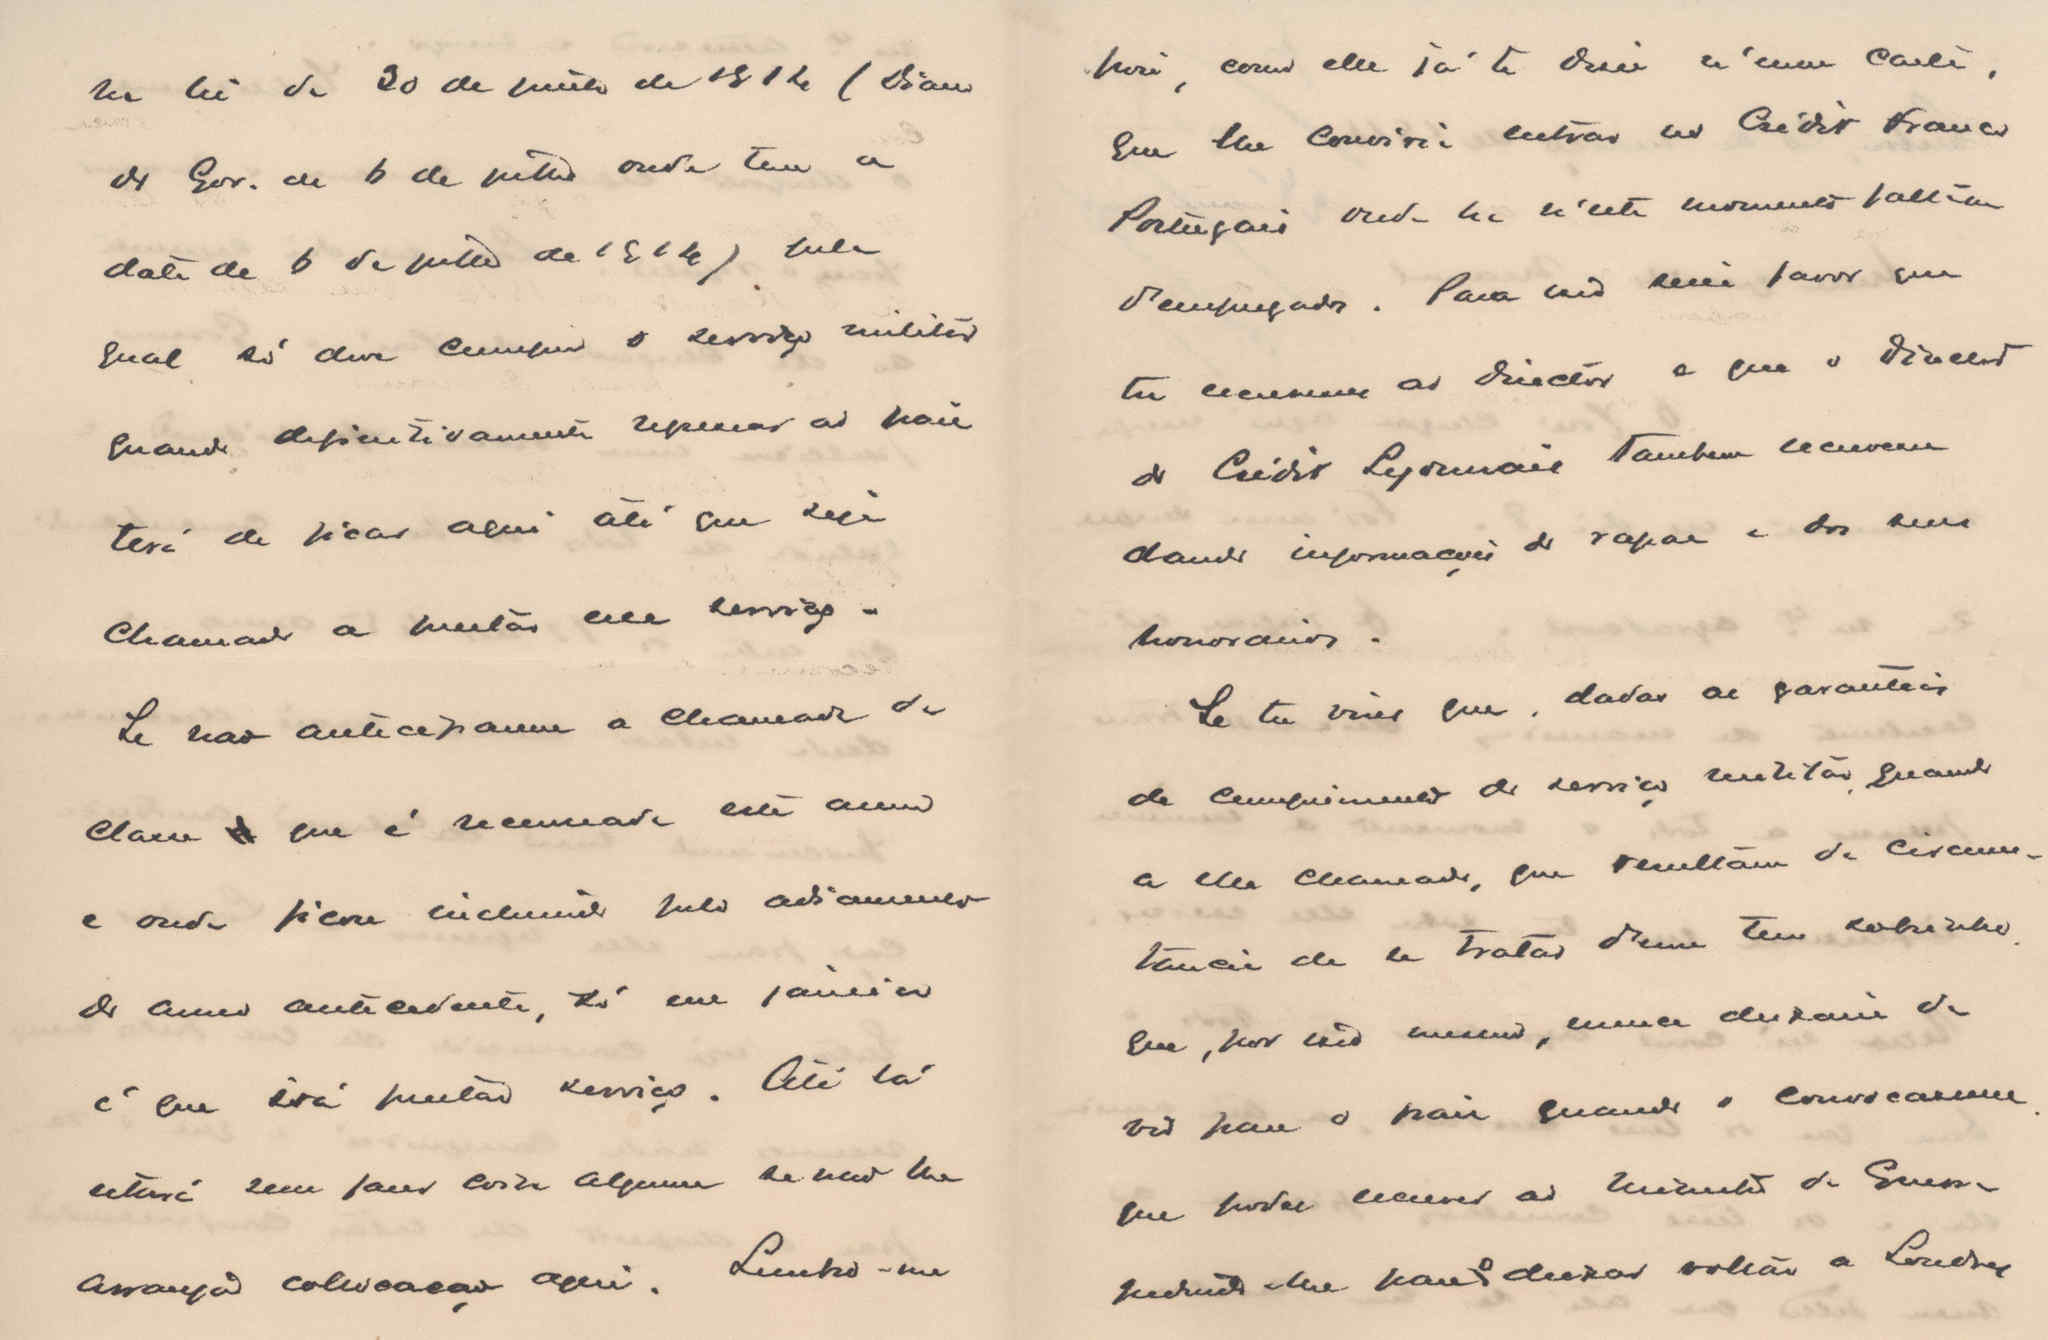 na lei de 30 de junho de 1914 (Diario
do Gov. de 6 de julho onde tem a
data de 6 de julho de 1914) pela
qual só deve cumprir o serviço militar
quando definitivamente regressar ao paiz
terá de ficar aqui até que seja
chamado a prestar esse serviço.
Se não anteciparem a chamada da
classe que é recenseada este anno
e onde ficou incluindo pelo adiamento
do anno antecedente, só em janeiro
é que irá prestar serviço. Até lá
estará sem fazer coisa alguma se não lhe
arranjar collocação aqui. Lembro-me
pois, como elle já te disse n'uma carta,
que lhe conviria entrar no Crédit Franco
Portugais onde ha n'este momento faltam
d'empregados. Para isso seria favor que
tu escrevesses ao director e que o director
do Crédit Lyonnais tambem escrevesse
dando informações do rapaz e dos seus
honorarios.
Se tu vires que, dadas as garantias
de cumprimento do serviço militar, quando
a elle chamado, que resultam da circums-
tancia de se tratar d'um teu sobrinho
que, por isso mesmo, nunca deixaria de
vir para o paiz quando o convocassem,
que podes escrever ao Ministro da Guerra
pedindo-lhe para o deixar voltar a Londres